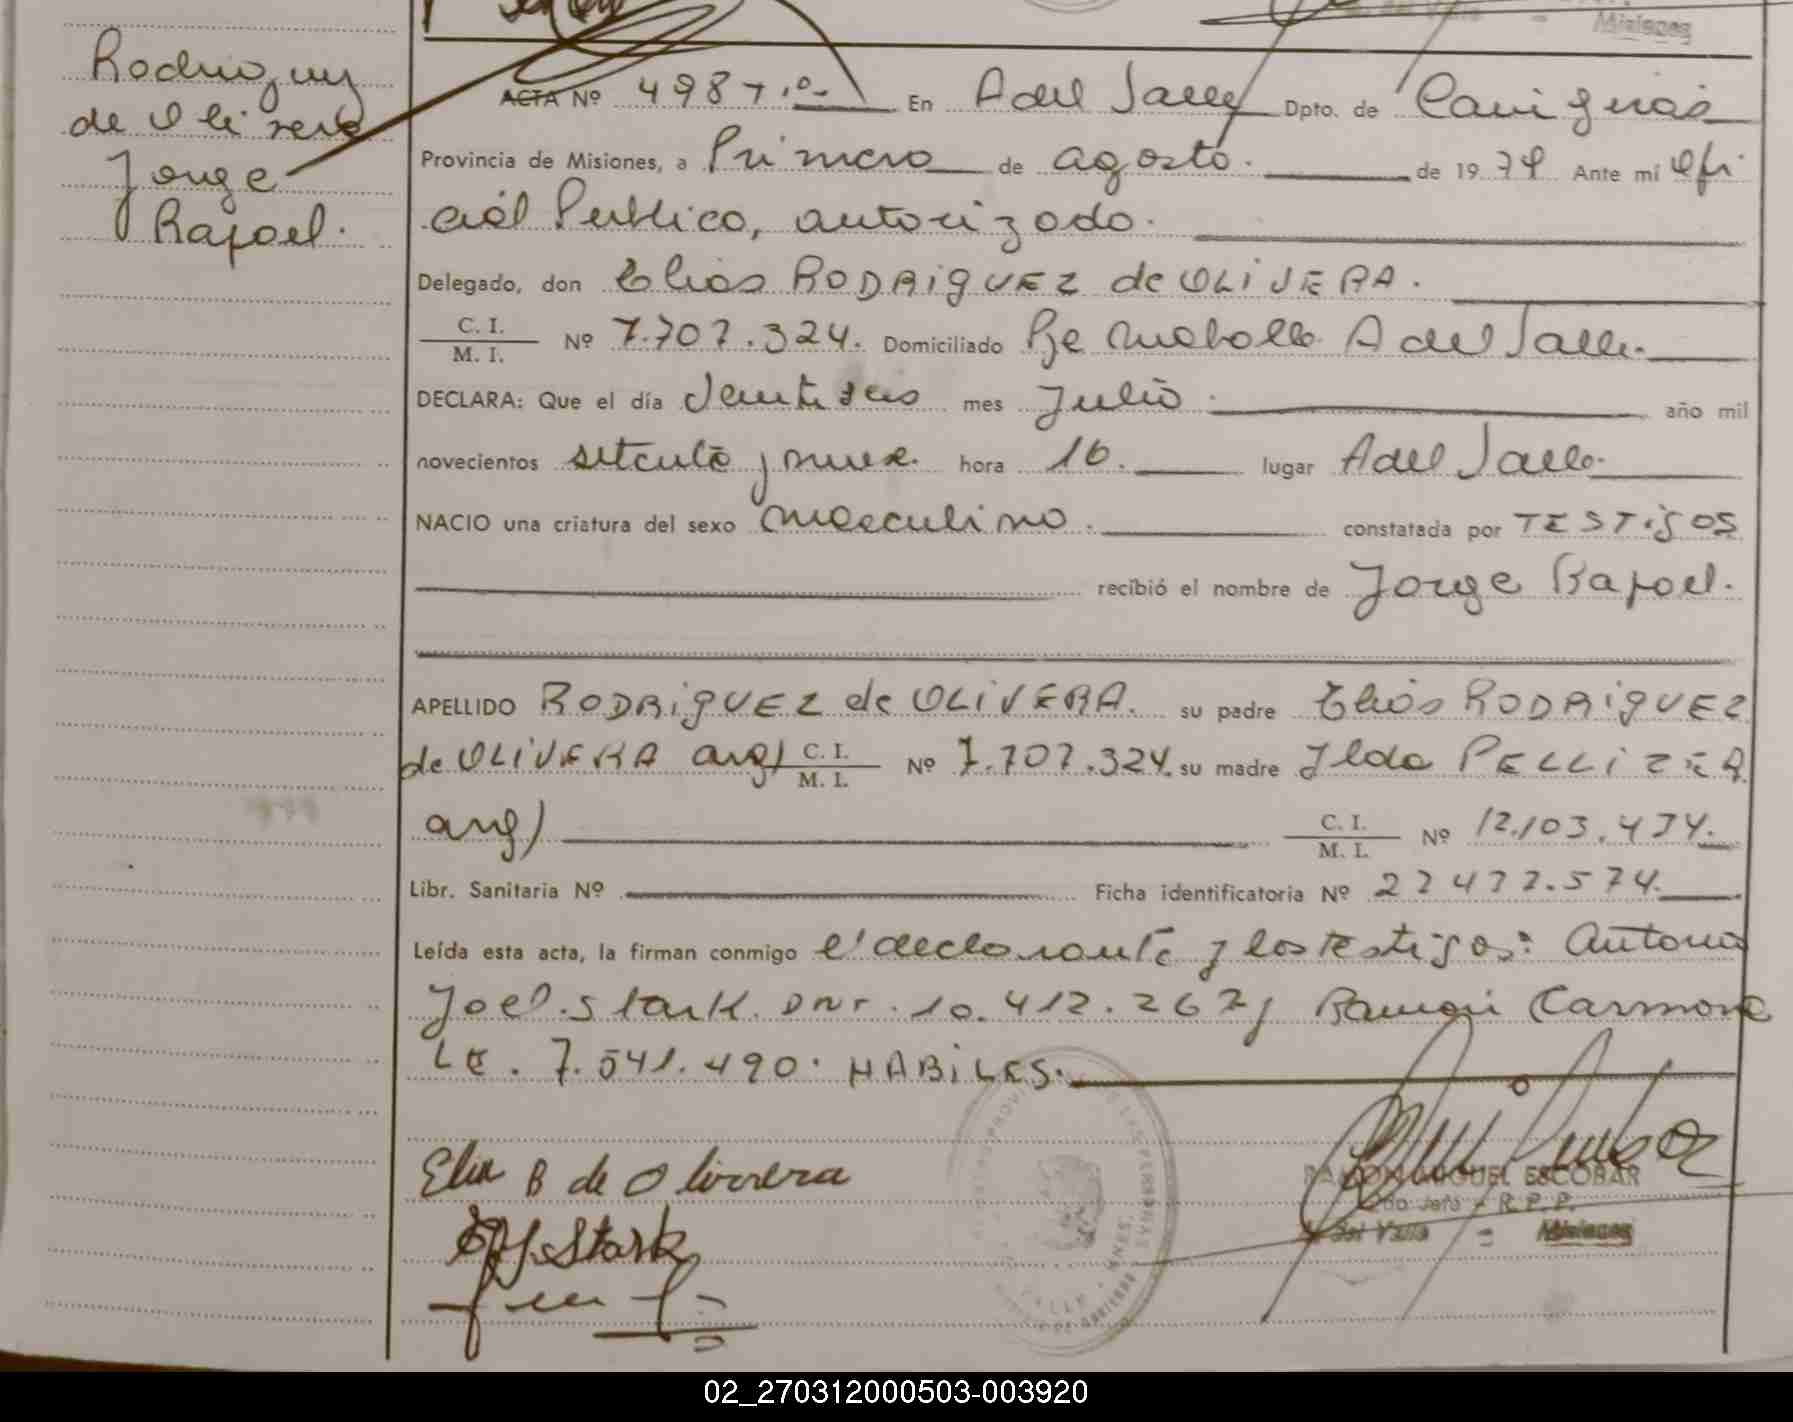 Rodriguez
de Olivera
Jorge
Rafael.
Misiones
ACTA Nº 498 T.º En A del Valle Dpto. de Cainguás
Provincia de Misiones, a Primero de agosto. de 1979 Ante mí Ofi
cial Publico, autorizado.
Delegado, don Elias RODRIGUEZ de OLIVERA.
C. I.
M. I. Nº 7.707.324. Domiciliado A del Valle.
DECLARA: Que el día Veintiseis mes Julio. año mil
novecientos setenta y nueve. hora 16. lugar A del Valle.
NACIO una criatura del sexo masculino. constatada por TESTigos
recibió el nombre de Jorge Rafael.
APELLIDO RODRIGUEZ de OLIVERA. su padre Elias RODRIGUEZ
de OLIVERA arg) C. I.
M. I. Nº 7.707.324. su madre Ilda PELLIZER
arg) C. I.
M. I. Nº 12.103.434.
Libr. Sanitaria Nº Ficha identificatoria Nº 27477.574.
Leída esta acta, la firman conmigo el declarante y los testigos: Antonio
Joel Stark. DNI. 10.412.267 y Ramón Carmona
LE. 7.541.490. HABILES.
Elia R de Olivera
Stark
RAMON MIGUEL ESCOBAR
2do Jefe - R. P. P.
A. del Valle - Misiones
02_270312000503-003920